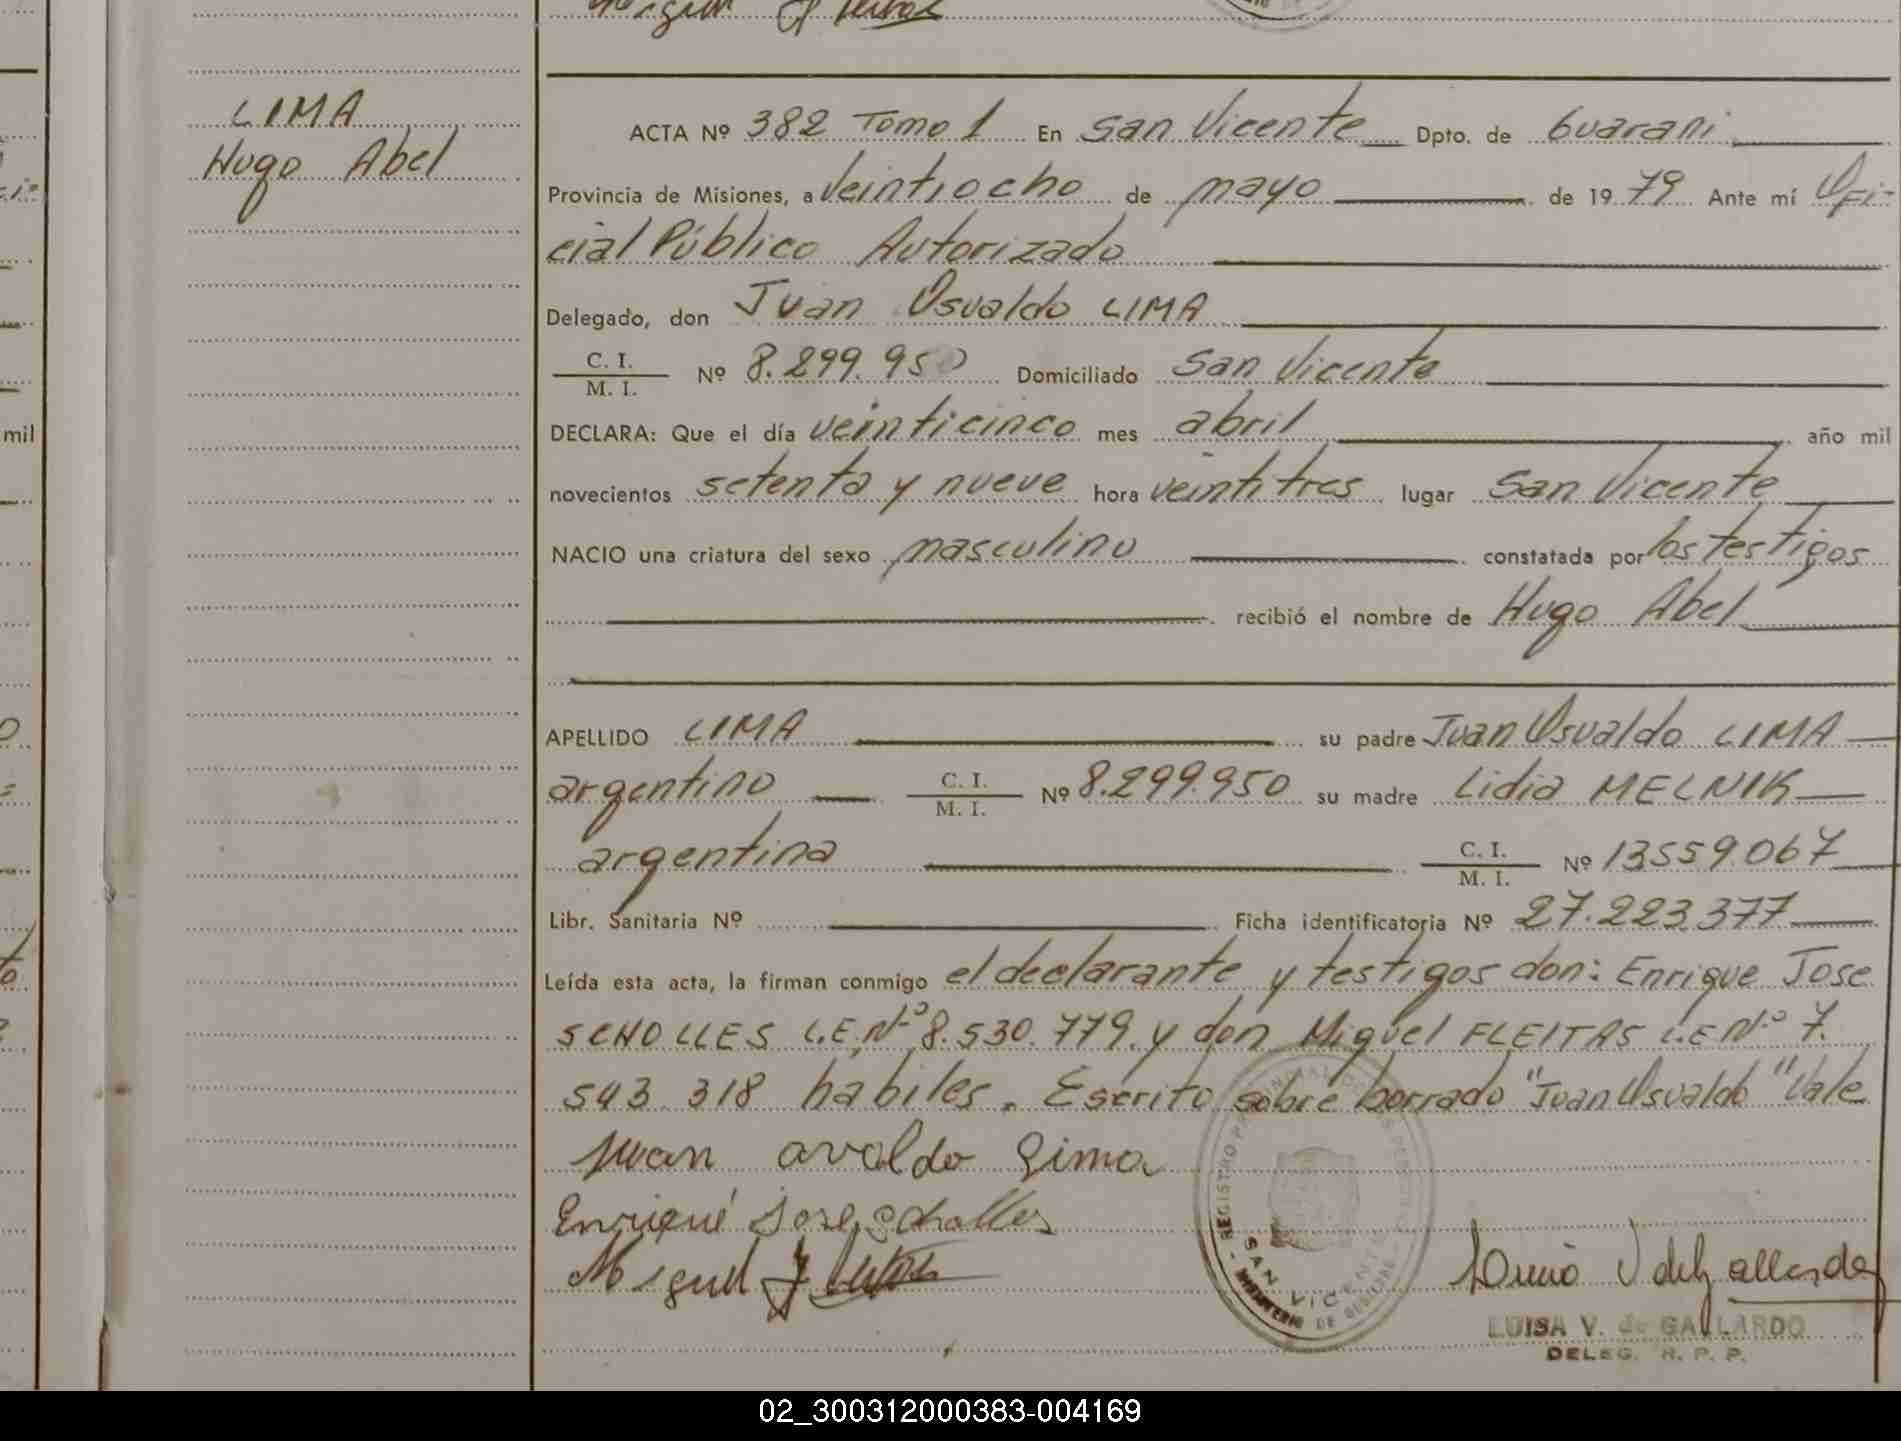 LIMA
Hugo Abel
ACTA Nº 382 Tomo 1 En San Vicente Dpto. de Guarani
Provincia de Misiones, a veintiocho de mayo de 1979 Ante mí Ofi-
cial Público Autorizado
Delegado, don Juan Osvaldo LIMA
C. I.
M. I. Nº 8.299.950 Domiciliado San Vicente
DECLARA: Que el día veinticinco mes abril año mil
novecientos setenta y nueve hora veintitres lugar San Vicente
NACIO una criatura del sexo masculino constatada por los testigos
recibió el nombre de Hugo Abel
APELLIDO LIMA su padre Juan Osvaldo LIMA
argentino C. I.
M. I. Nº 8.299.950 su madre Lidia MELNIK
argentina C. I.
M. I. Nº 13559.067
Libr. Sanitaria Nº Ficha identificatoria Nº 27.223.377
Leída esta acta, la firman conmigo el declarante y testigos don: Enrique Jose
SCHOLLES L.E.Nº 8.530.779. y don Miguel FLEITAS L.E Nº 7.
543.318 hábiles. Escrito sobre borrado "Juan Osvaldo" Vale
Juan Ovaldo Lima
Enrique Jose Scholles
Miguel
REGISTRO PROVINCIAL DE LAS PERSONAS
SAN VICENTE
MINISTERIO DE GOBIERNO
LUISA V. de GALLARDO
DELEG. R. P. P.
mil
02_300312000383-004169